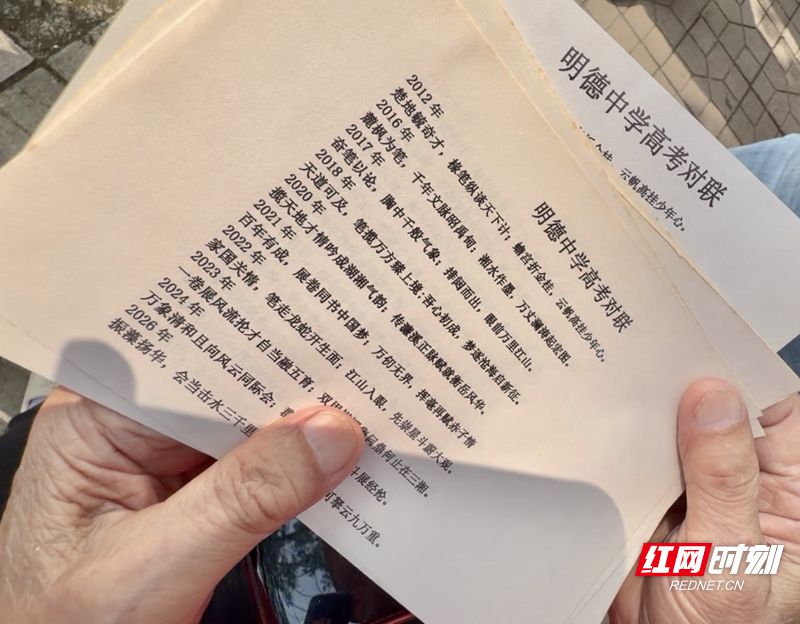 明德中学高考对联
2012 年
楚地毓奇才，椽笔纵谈天下计；蟾宫折金桂，云帆高挂少年心。
2016 年
麓枫为笔，千年文脉昭禹甸；湘水作墨，万丈澜涛起宏图。
2017 年
奋笔以论，胸中千般气象；捧阅而出，眼前万里江山。
2018 年
天道可及，笔揽万方臻上境；吾心初成，梦逐沧海启新征。
2020 年
揽天地才情吟成湖湘气韵；传濂溪正脉赋就衡岳风华。
2021 年
百年有成，展卷同书中国梦；万仞无界，挥毫再赋赤子情
2022 年
家国关情，笔走龙蛇开生面；江山入眼，先崇星斗蔚大观。
2023 年
一卷展风流抡才自当融五育；双 问鼎何止在三湘。
2024 年
万象清和日向风云同际会； 斗展经纶。
2026 年
振藻扬华，会当击水三千里 可擎云九万重。
明德中学高考对联
折金桂，云帆高挂少年心。
红网时刻
REDNET.CN